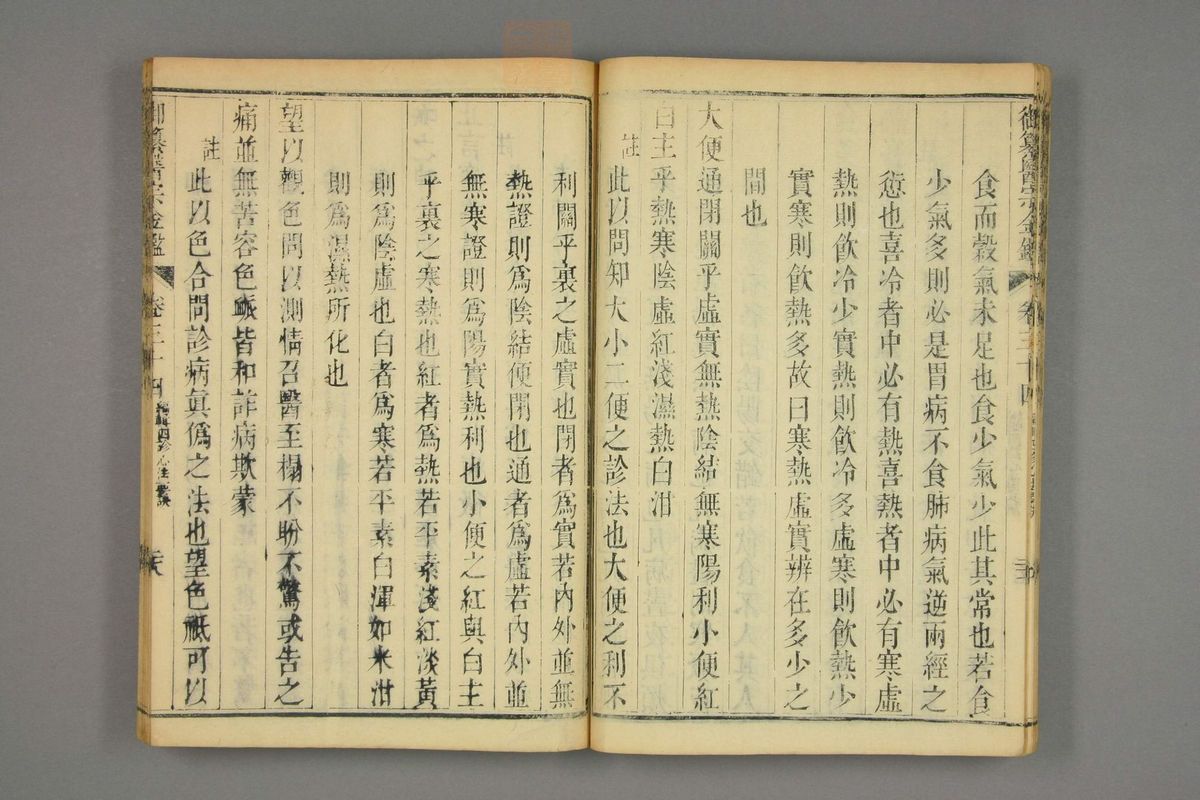 御纂醫宗金鑑 卷三十四
食而穀氣未足也食少氣少此其常也若食
少氣多則必是胃病不食肺病氣逆兩經之
愆也喜冷者中必有熱喜熱者中必有寒虛
熱則飲冷少實熱則飲冷多虛寒則飲熱少
實寒則飲熱多故曰寒熱虛實辨在多少之
間也
大便通閉關乎虛實無熱陰結無寒陽利小便紅
白主乎熱寒陰虛紅淺濕熱白泔
註
此以問知大小二便之診法也大便之利不
利關乎裏之虛實也閉者為實若內外並無
熱證則為陰結便閉也通者為虛若內外並
無寒證則為陽實熱利也小便之紅與白主
乎裏之寒熱也紅者為熱若平素淺紅淡黃
則為陰虛也白者為寒若平素白渾如米泔
則為濕熱所化也
望以觀色問以測情召醫至榻不盼不驚或告之
痛並無苦容色脈皆和詐病欺蒙
註
此以色合問診病眞偽之法也望色祇可以
御纂醫宗金鑑 卷三十四 編輯四診心法要訣 三六